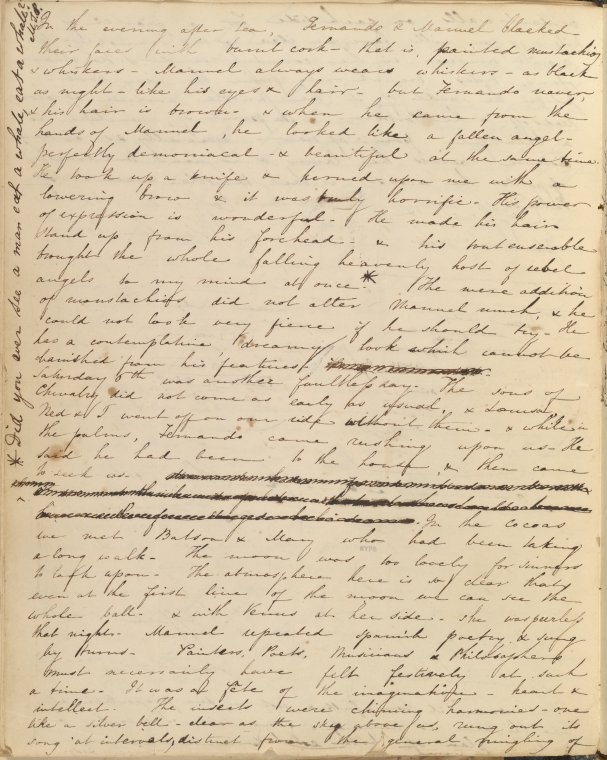 In the evening after tea, Fernando & Manuel blacked
their faces with burnt cork - that is, painted mustachios
& whiskers - Manuel always wears whiskers - as black
as night - like his eyes & hair - but Fernando never,
& his hair is brown - & when he came from the
hands of Manuel, he looked like a fallen angel -
perfectly demoniacal - & beautiful at the same time.
He took up a knife & turned upon me with a
lowering brow & it was truly horrific - His power
of expression is wonderful - He made his hair
stand up from his forehead - & his tout ensemble
brought the whole falling heavenly host of rebel
angels to my mind at once * The mere addition
of moustachios did not alter Manuel much, & he
could not look very fierce if he should try - He
has a contemplative, dreamy look which cannot be
banished from his features
Saturday 6th was another faultless day. The sons of
Chivalry did not come as early as usual, & Louisa,
Ned & I went off on our ride without them - & while in
the palms, Fernando came rushing upon us - He
said he had been to the house & then came
to seek us.
In the cocoas
we met Batson & Mary who had been taking
a long walk - The moon was too lovely for sinners
to look upon - The atmosphere here is so clear that
even at the first line of the moon we can see the
whole ball - & with Venus at her side - she was peerless
that night - Manuel repeated Spanish poetry & sung
by turns - Painters, Poets, Musicians & Philosophers
must necessarily have felt festively at such
a time - It was a fête of the imagination - heart &
intellect. The insects were chiming harmonies - one
like a silver bell - clear as the sky above us, rung out its
song at intervals, distinct from the general tingling of
* Did you ever see a man eat a whale, eat a whale